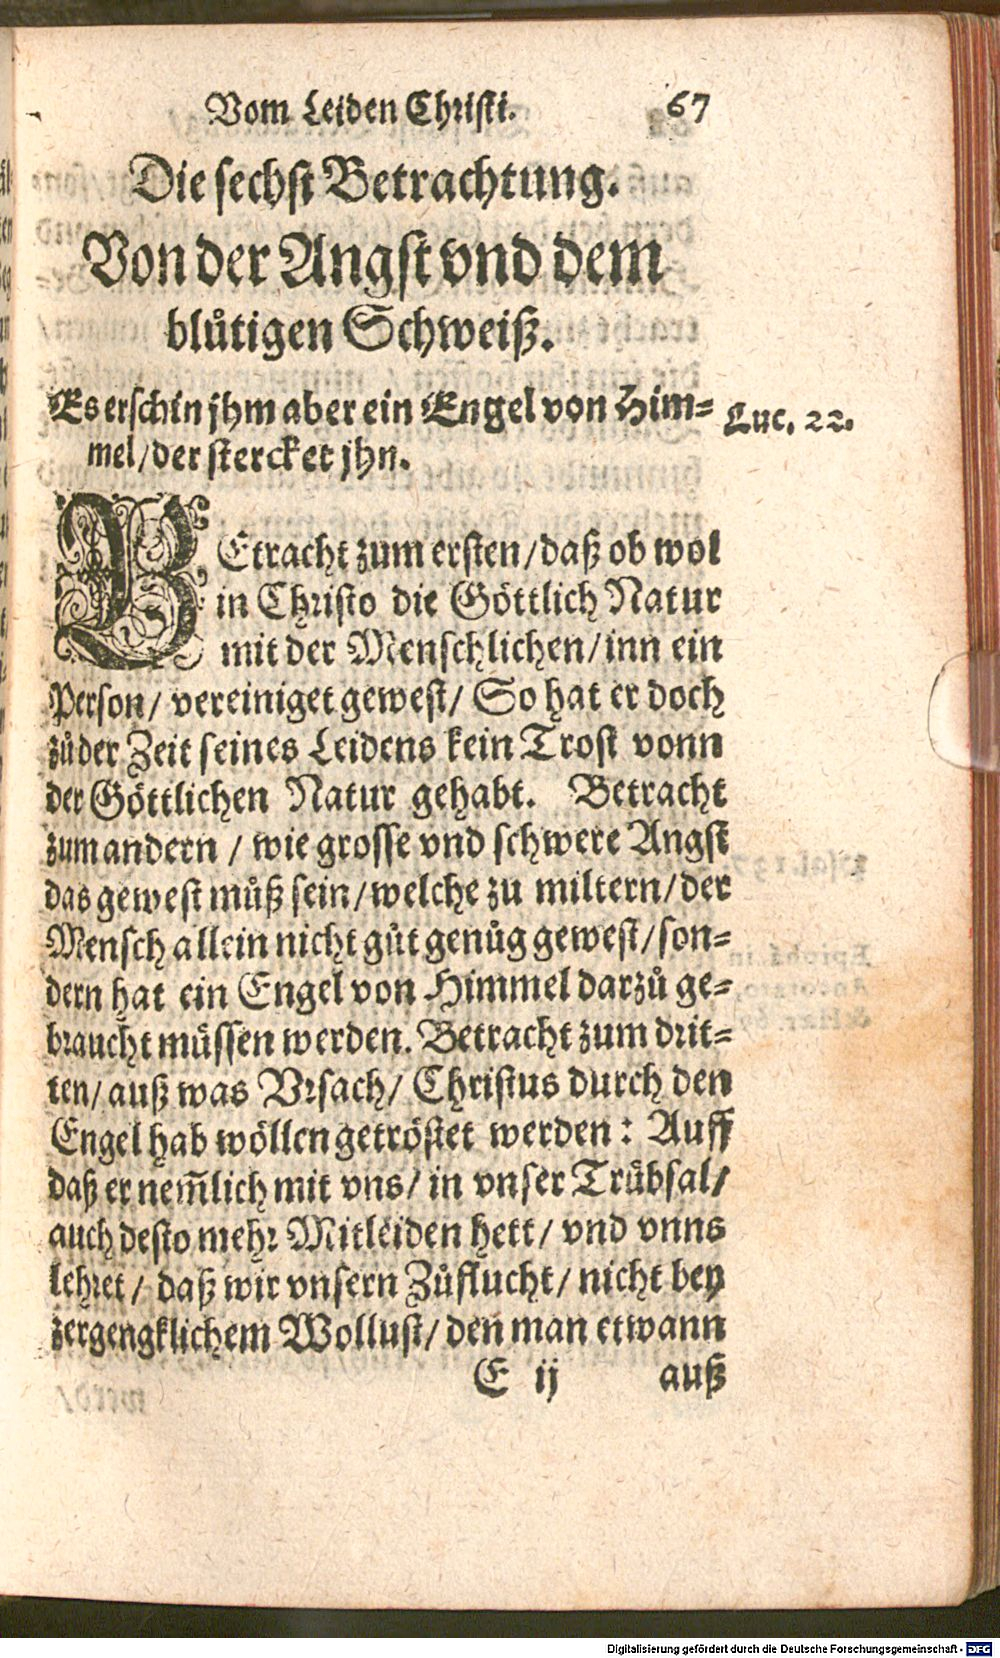 Vom Leiden Christi. 67
Die sechst Betrachtung.
Von der Angst vnd dem
blůtigen Schweiß.
Es erschin jhm aber ein Engel von Him- Luc. 22.
mel/ der stercket jhn.
BEtracht zum ersten/ daß ob wol
in Christo die Göttlich Natur
mit der Menschlichen/ inn ein
Person/ vereiniget gewest/ So hat er doch
zů der Zeit seines Leidens kein Trost vonn
der Göttlichen Natur gehabt. Betracht
zum andern / wie grosse vnd schwere Angst
das gewest můß sein/ welche zu miltern/ der
Mensch allein nicht gůt genůg gewest/ son-
dern hat ein Engel von Himmel darzů ge-
braucht müssen werden. Betracht zum drit-
ten/ auß was Vrsach/ Christus durch den
Engel hab wöllen getröstet werden: Auff
daß er nem̃lich mit vns/ in vnser Trůbsal/
auch desto mehr Mitleiden hett/ vnd vnns
lehret/ daß wir vnsern Zůflucht/ nicht bey
zergengklichem Wollust/ den man etwann
E ij auß
Digitalisierung gefördert durch die Deutsche Forschungsgemeinschaft - DFG